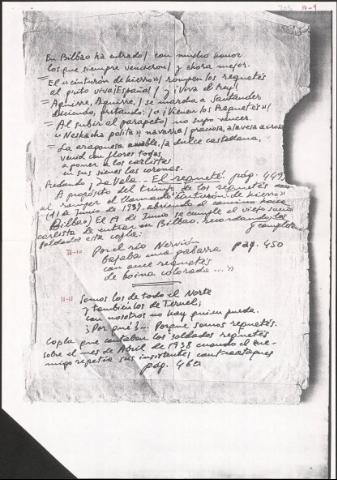 En Bilbao ha entrado/ con mucho honor
los que siempre vencieron/ y ahora mejor.
El «cinturón de hierro»/ rompen los requetés
al grito viva España/ y ¡Viva el Rey!
Aguirre, Aguirre,/ se marcha a Santander
diciendo, gritando:/ ¡o ¡Vienen los Requetés»!
Al subir al parapeto/ no supo vencer.
polita» navarra/ preciosa,
La aragonesa amable,/ a dulce castellana,
venid con flores todas
a poner a los carlistas
en sus sienes las coronas.
Redondo y Zavala - El requeté. pág. 449.
A propósito del triunfo de los requetés
al romper el llamado «cinturón de hierro»
de Junio de 1937, abriendo el camino hacia
Bilbao) El 19 de Junio se cumple el viejo sueño
carlista de entrar en Bilbao. Recordando los
soldados esta copla: y cumplen
II-10 Por el río Nervión
bajaba una gabarra pág. 450
con once requetés
de boina colorada ...»
II-11 Somos los de todo el Norte
y también los de Teruel;
con nosotros no hay quien pueda.
¿Por qué?... Porque somos requetés.
Copla que cantaban los soldados requetés
sobre el mes de Abril de 1938 cuando el ene-
migo repetía sus insistentes contraataques
pág. 460